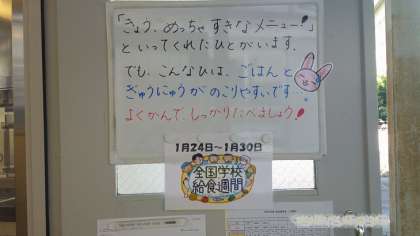 「きょう、めっちゃ すきな メニュー!」
と いってくれた ひとが います。
でも、こんなひは、ごはんと
ぎゅうにゅうが のこりやすいです。
よくかんで しっかり たべましょう!
1月24日～1月30日
全国学校
給食週間